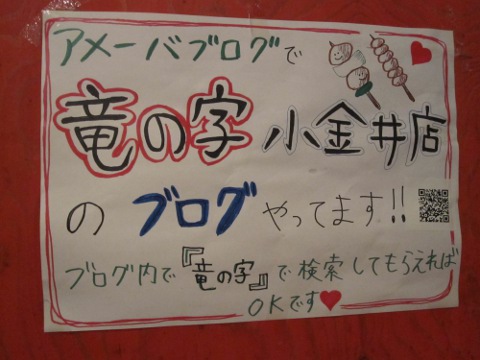 アメーバブログで
竜の字 小金井店
の ブログ やってます!!
ブログ内で『竜の字』で検索してもらえれば
OKです♥